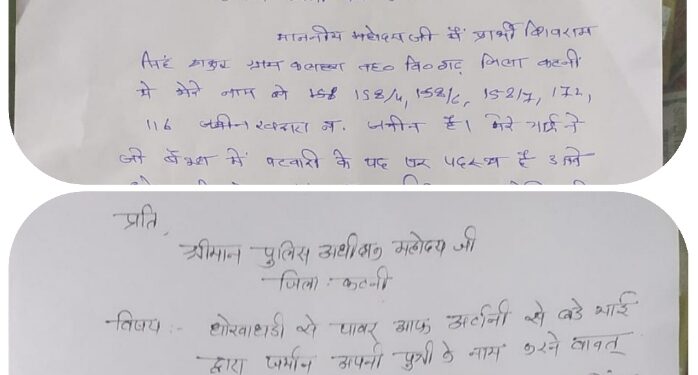 माननीय महोदय जी मैं प्रार्थी शिवराम
सिंह ठाकुर ग्राम कलहरा तह० वि०गढ़ जिला कटनी
मे मेरे नाम से 158/4, 158/6, 152/7, 172,
116 जमीन खसरा न. जमीन है। मेरे भाई ने
जो में पटवारी के पद पर पदस्थ है उसने
प्रति,
श्रीमान पुलिस अधीक्षक महोदय जी
जिला : कटनी
विषय :- धोखाधडी से पावर आफ अर्टानी से बडे भाई
द्वारा जमीन अपनी पुत्री के नाम करने वावत्